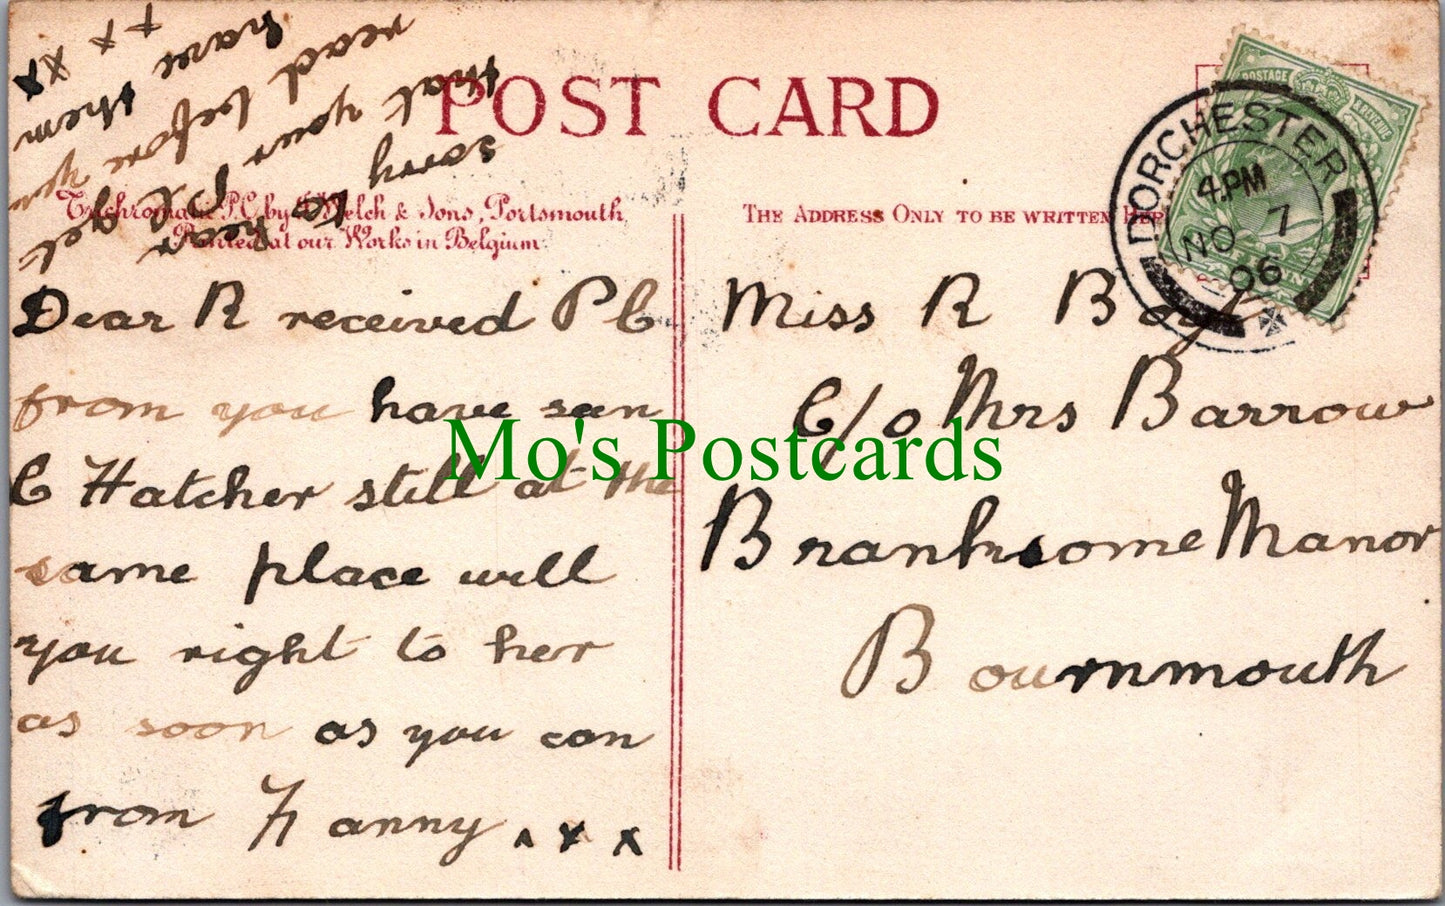 POST CARD
Trichromatic P.C. by J Welch & Sons, Portsmouth.
Printed at our Works in Belgium
sorry to hear
that your P C get
read before you
have them
+ + x x
Dear R received P C
from you have sen
C Hatcher still at the
same place will
you right to her
as soon as you can
from Fanny. x x x
THE ADDRESS ONLY TO BE WRITTEN HERE
POSTAGE & REVENUE
DORCHESTER
4.PM
NO 7
06
Miss R
C/o Mrs Barrow
Branksome Manor
Bournmouth
Mo's Postcards